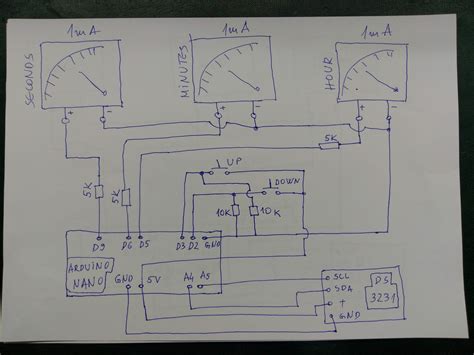 1mA 1mA 1mA
SECONDS MINUTES HOUR
+ - + - + -
5K 5K 5K
UP
DOWN
10K 10K
D9 D6 D5 D3 D2 GND
ARDUINO
NANO
GND 5V A4 A5
SCL
SDA
+
GND
DS
3231